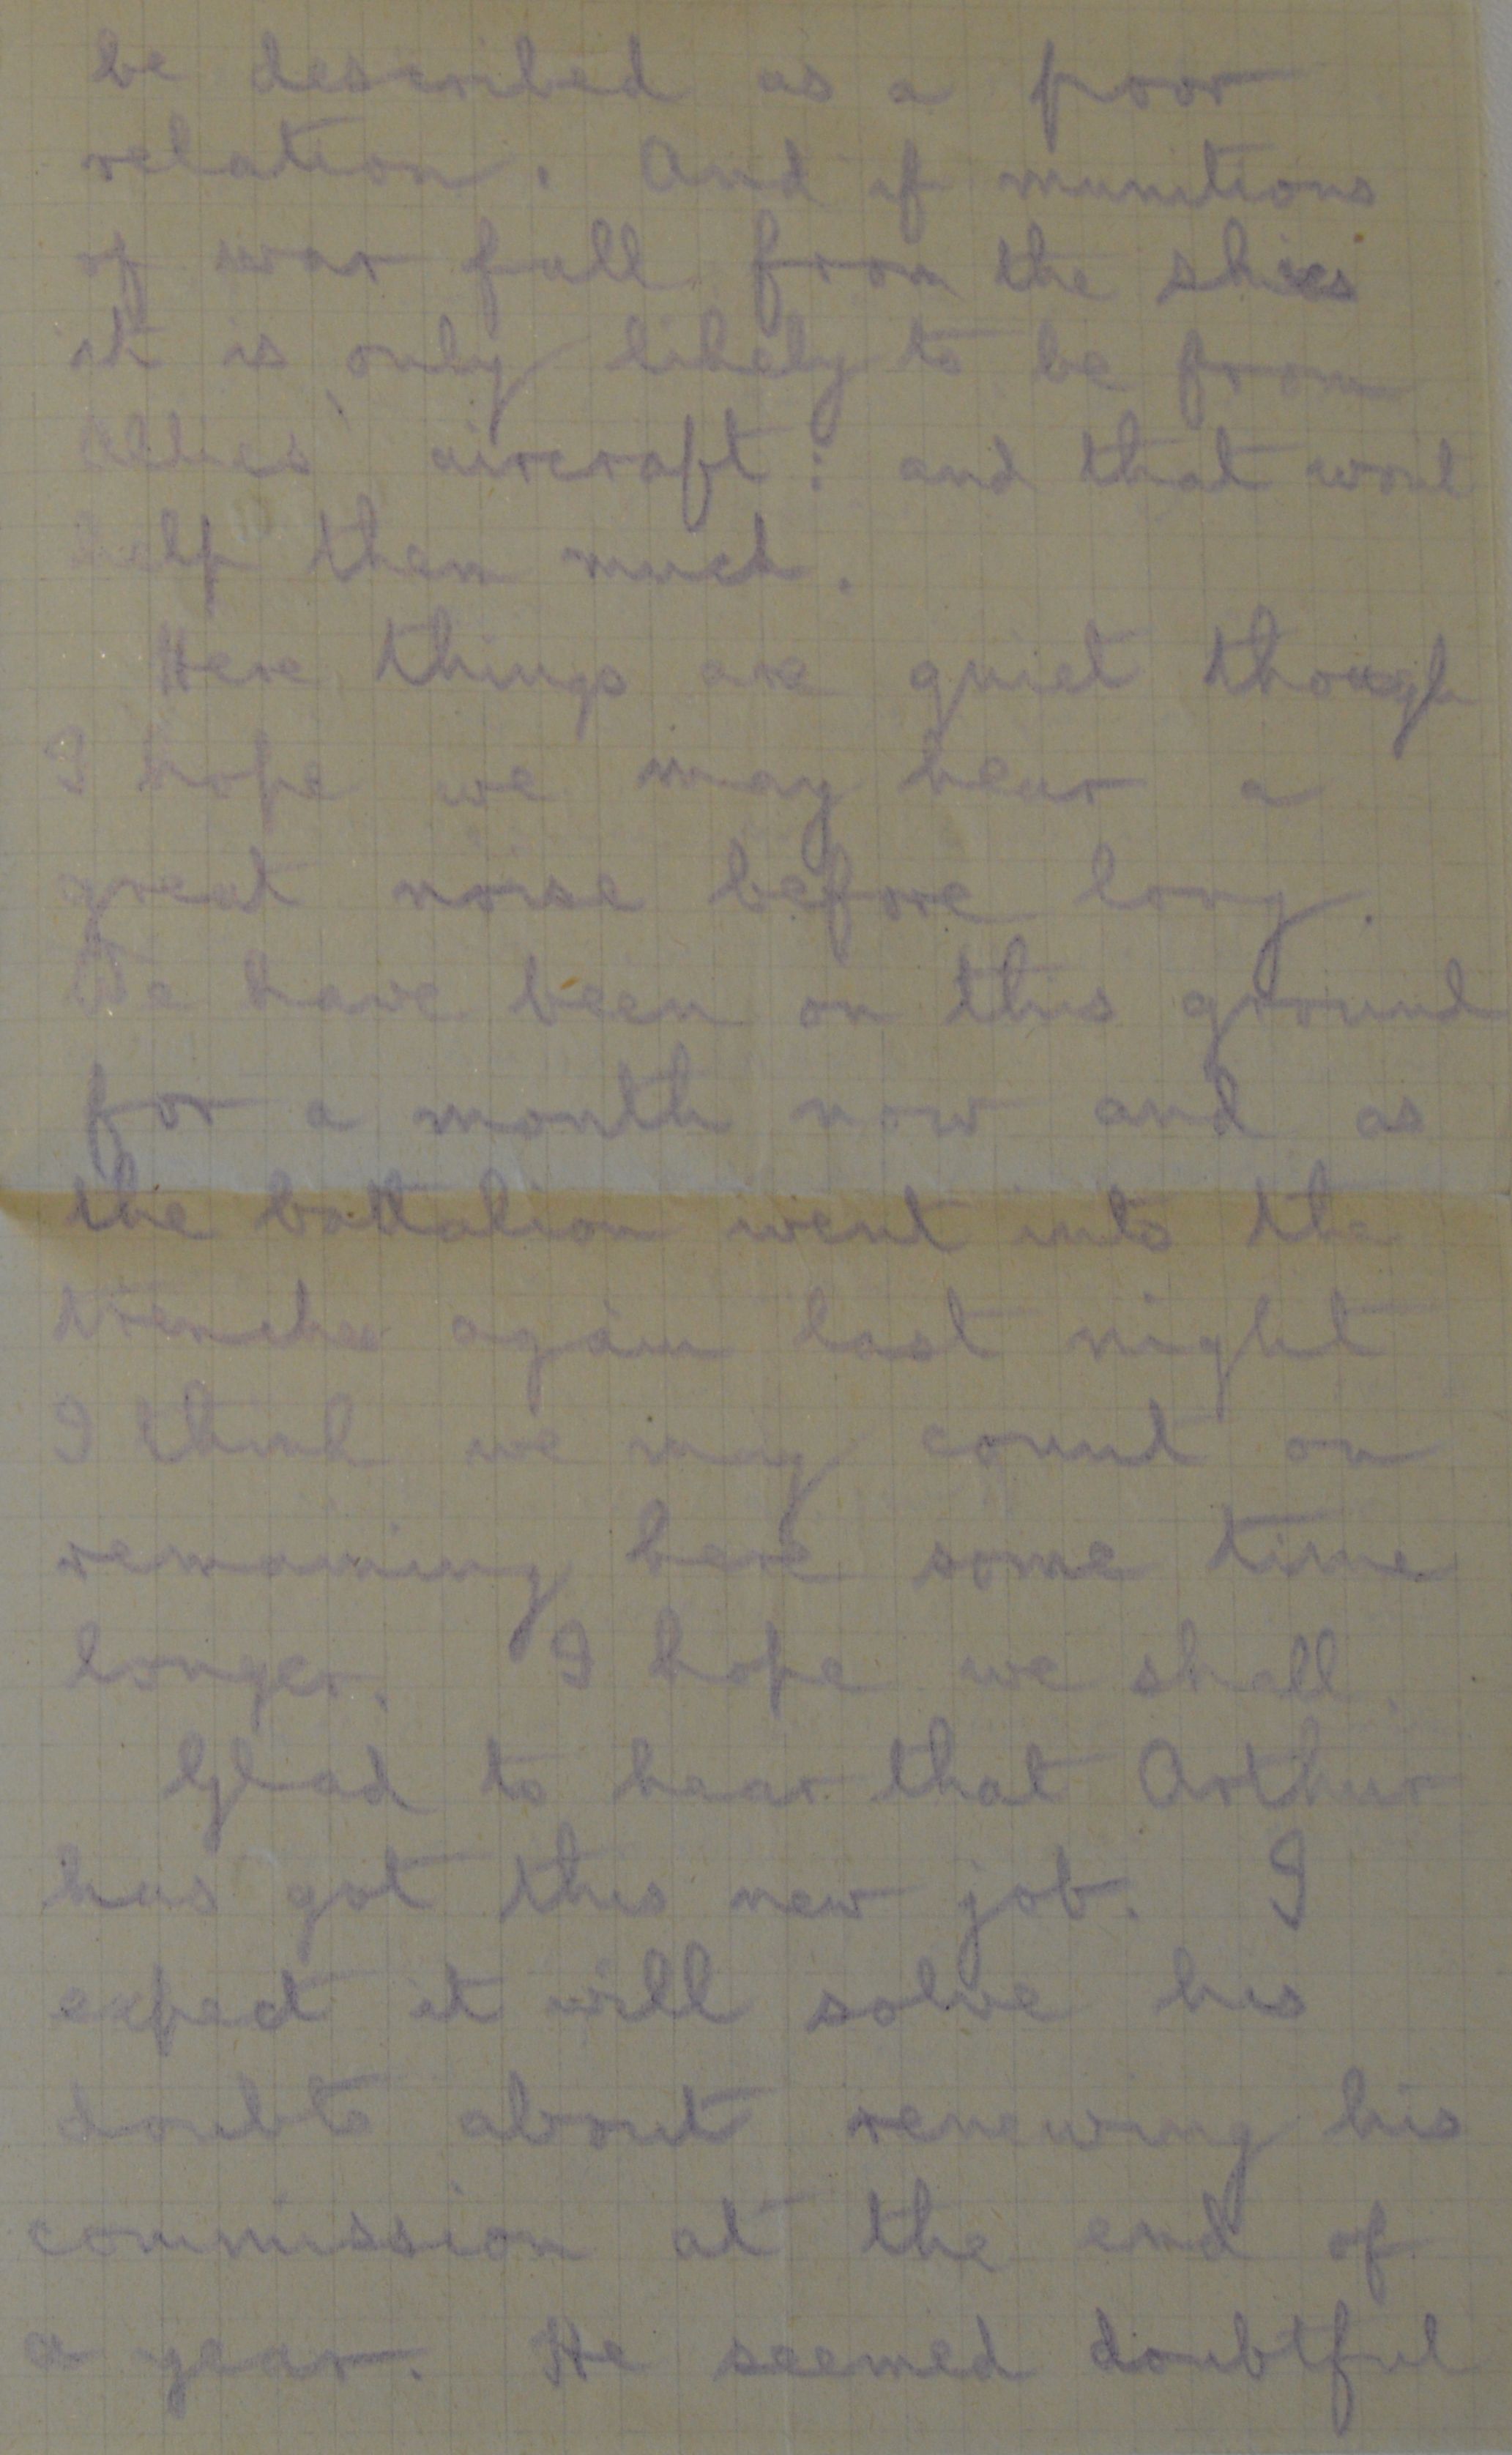 be described as a poor
relation. And if munitions
of war fall from the skies
it is only likely to be from
Allies' aircraft: and that wont
help them much.
Here things are quiet though
I hope we may hear a
great noise before long.
We have been on this ground
for a month now and as
the battalion went into the
trenches again last night
I think we may count on
remaining here some time
longer. I hope we shall.
Glad to hear that Arthur
has got this new job. I
expect it will solve his
doubts about renewing his
commission at the end of
a year. He seemed doubtful